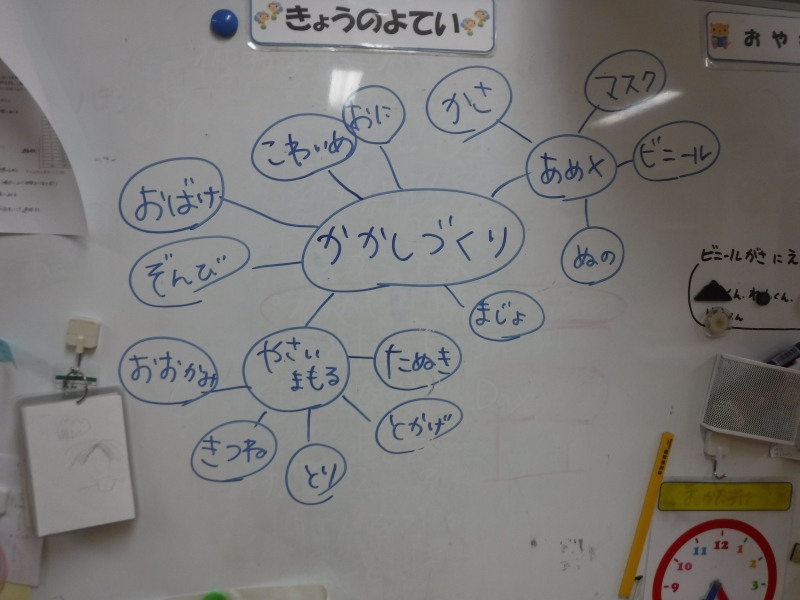 きょうのよてい
おや
マスク
かさ
おに
こわいめ
あめ×
ビニール
おばけ
かかしづくり
ぬの
ぞんび
ビニールがさにえ
まじょ
やさい
まもる
たぬき
おおかみ
とかげ
きつね
とり
11 12 1
10 2
9 3